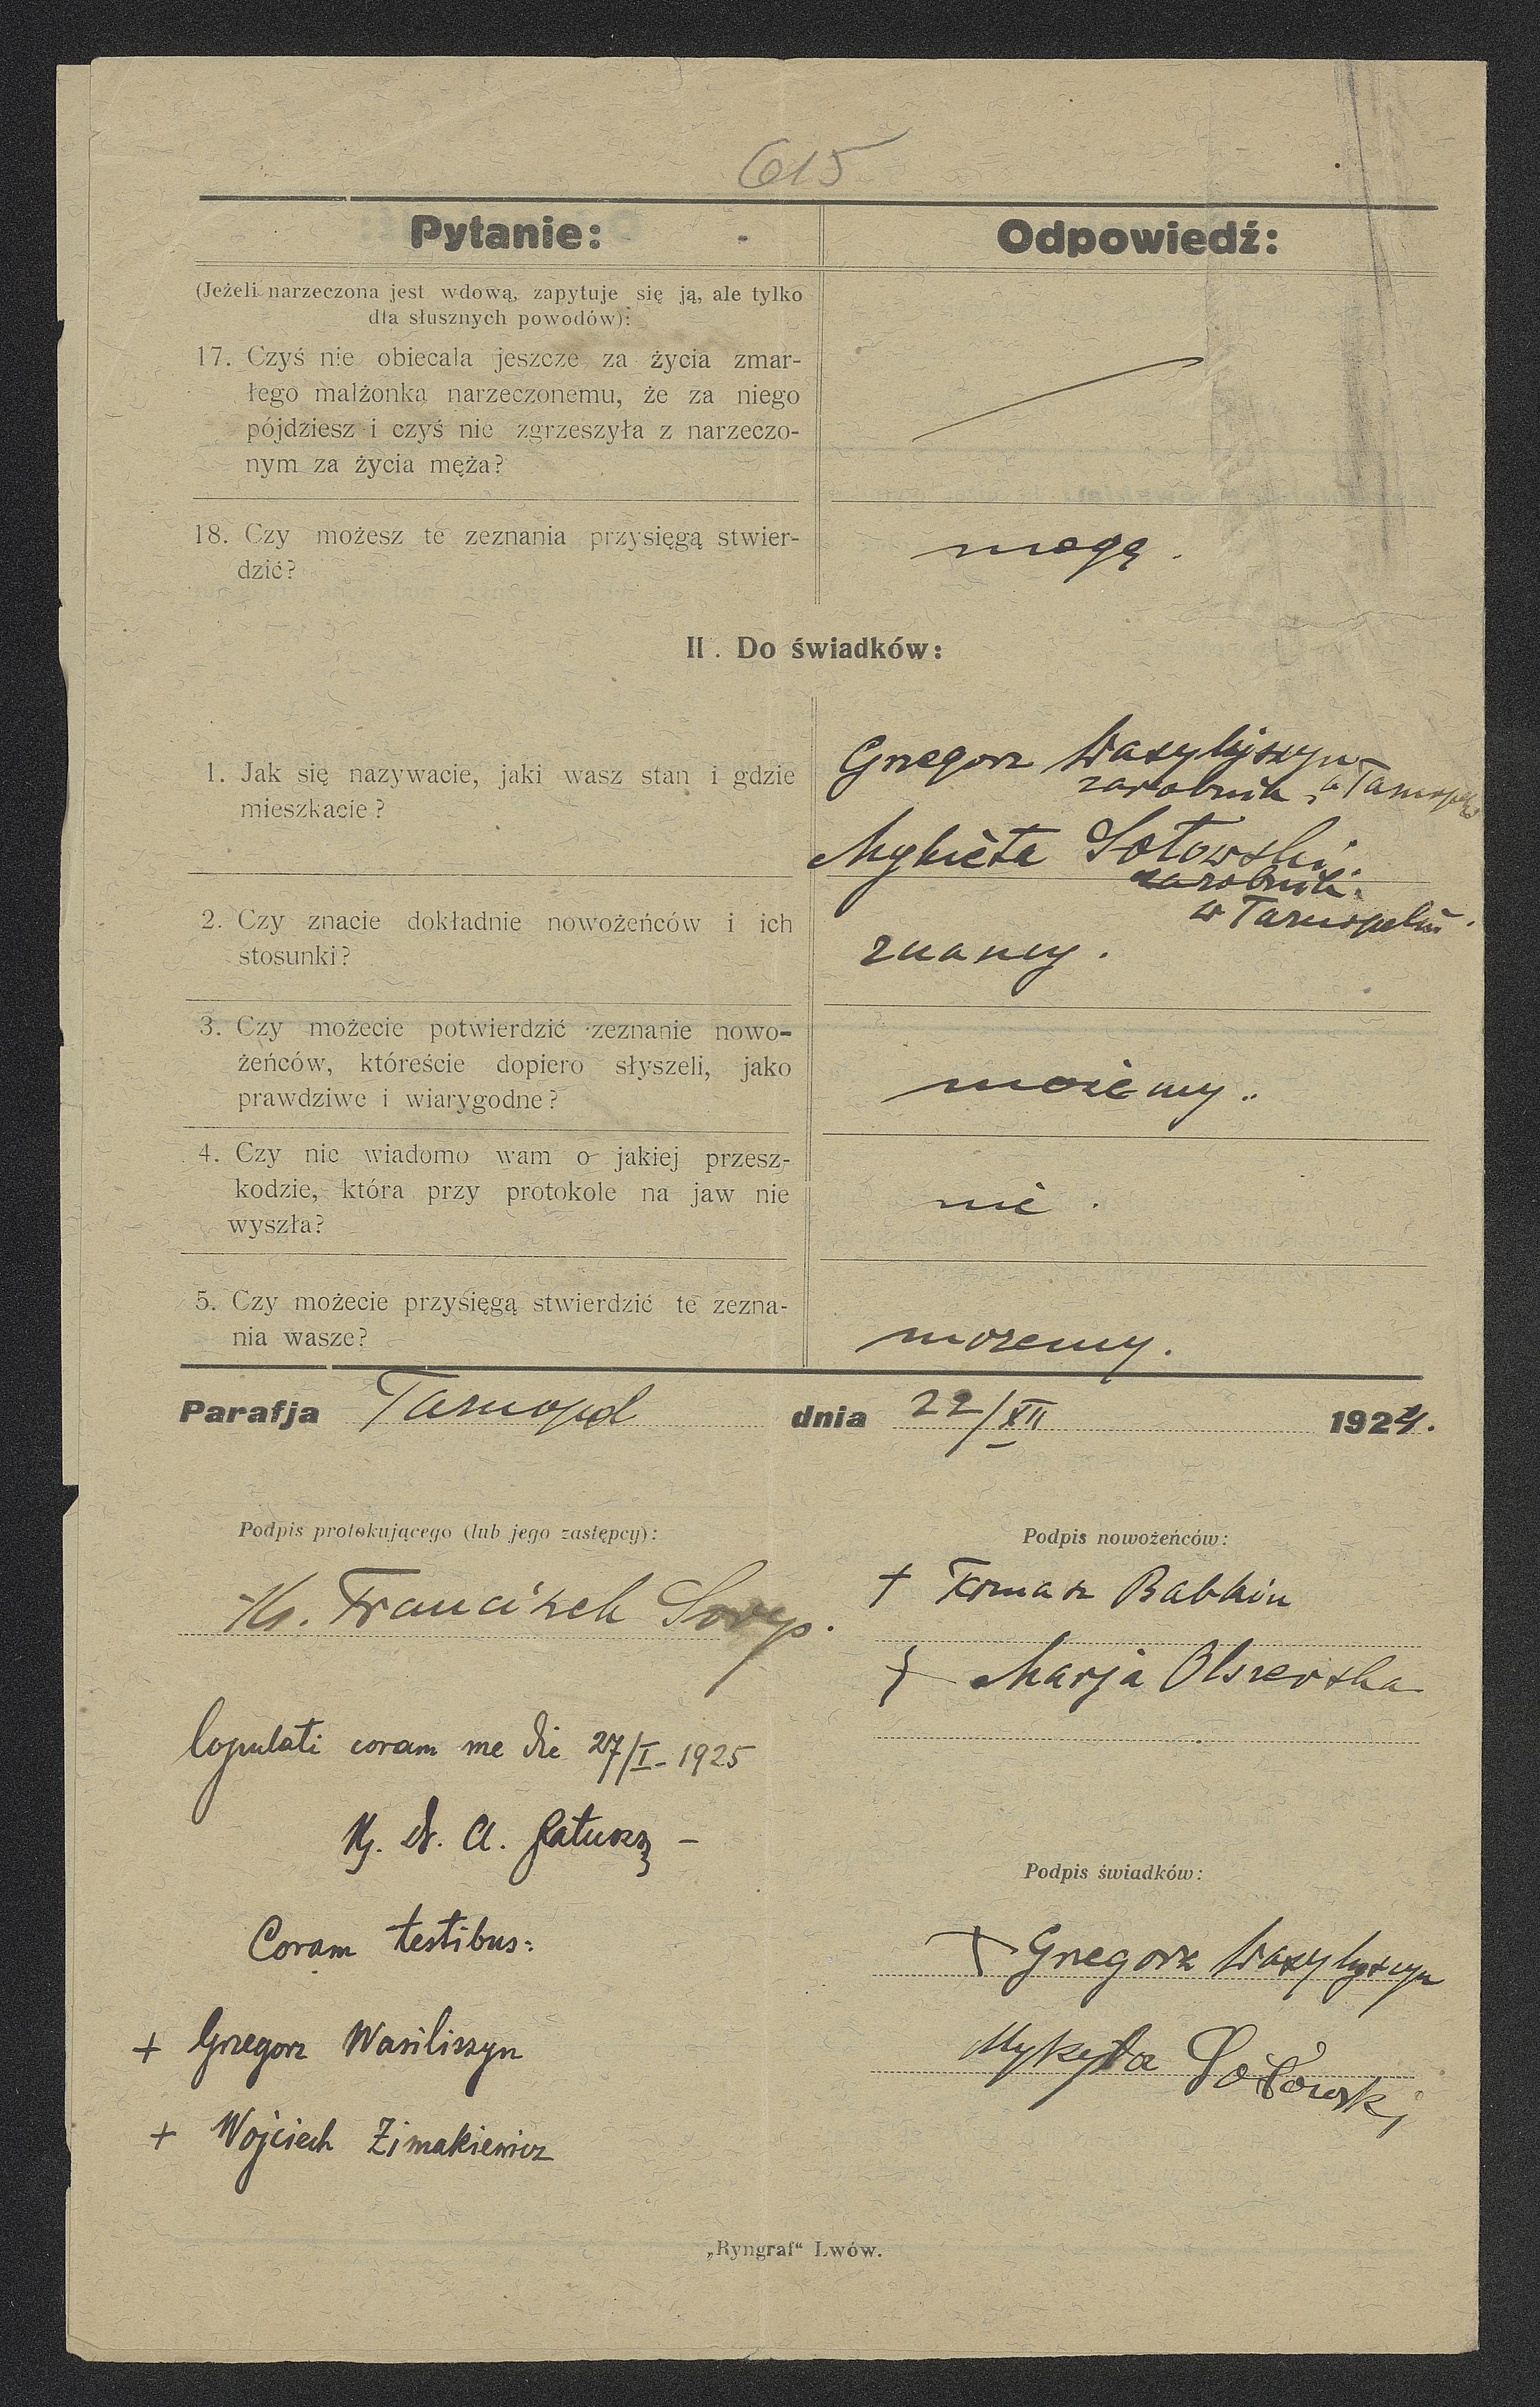 615
Pytanie:
Odpowiedź:
(Jeżeli narzeczona jest wdową, zapytuje się ją, ale tylko
dla słusznych powodów):
17. Czyś nie obiecała jeszcze za życia zmar-
łego małżonka narzeczonemu, że za niego
pójdziesz i czyś nie zgrzeszyła z narzeczo-
nym za życia męża?
18. Czy możesz te zeznania przysięgą stwier-
dzić?
mogę.
II. Do świadków:
1. Jak się nazywacie, jaki wasz stan i gdzie
mieszkacie?
Grzegorz Wasylyszyn
zarobnik, w Tarnopolu
Mykieta Sołowski
zarobnik
w Tarnopolu.
2. Czy znacie dokładnie nowożeńców i ich
stosunki?
znamy.
3. Czy możecie potwierdzić zeznanie nowo-
żeńców, któreście dopiero słyszeli, jako
prawdziwe i wiarygodne?
możemy.
4. Czy nie wiadomo wam o jakiej przesz-
kodzie, która przy protokole na jaw nie
wyszła?
nie.
5. Czy możecie przysięgą stwierdzić te zezna-
nia wasze?
możemy.
Parafja Tarnopol dnia 22/XII 1924.
Podpis protokującego (lub jego zastępcy):
Ks. Franciszek
Podpis nowożeńców:
+ Tomasz Babkin
+ Marja Olszewska
Copulati coram me die 27/I-1925
Ks. dr. A.
Coram testibus:
+ Grzegorz Wasiliszyn
+ Wojciech Zimakiewicz
Podpis świadków:
+ Grzegorz Wasylyszyn
Mykyta Sołowskij
„Ryngraf“ Lwów.